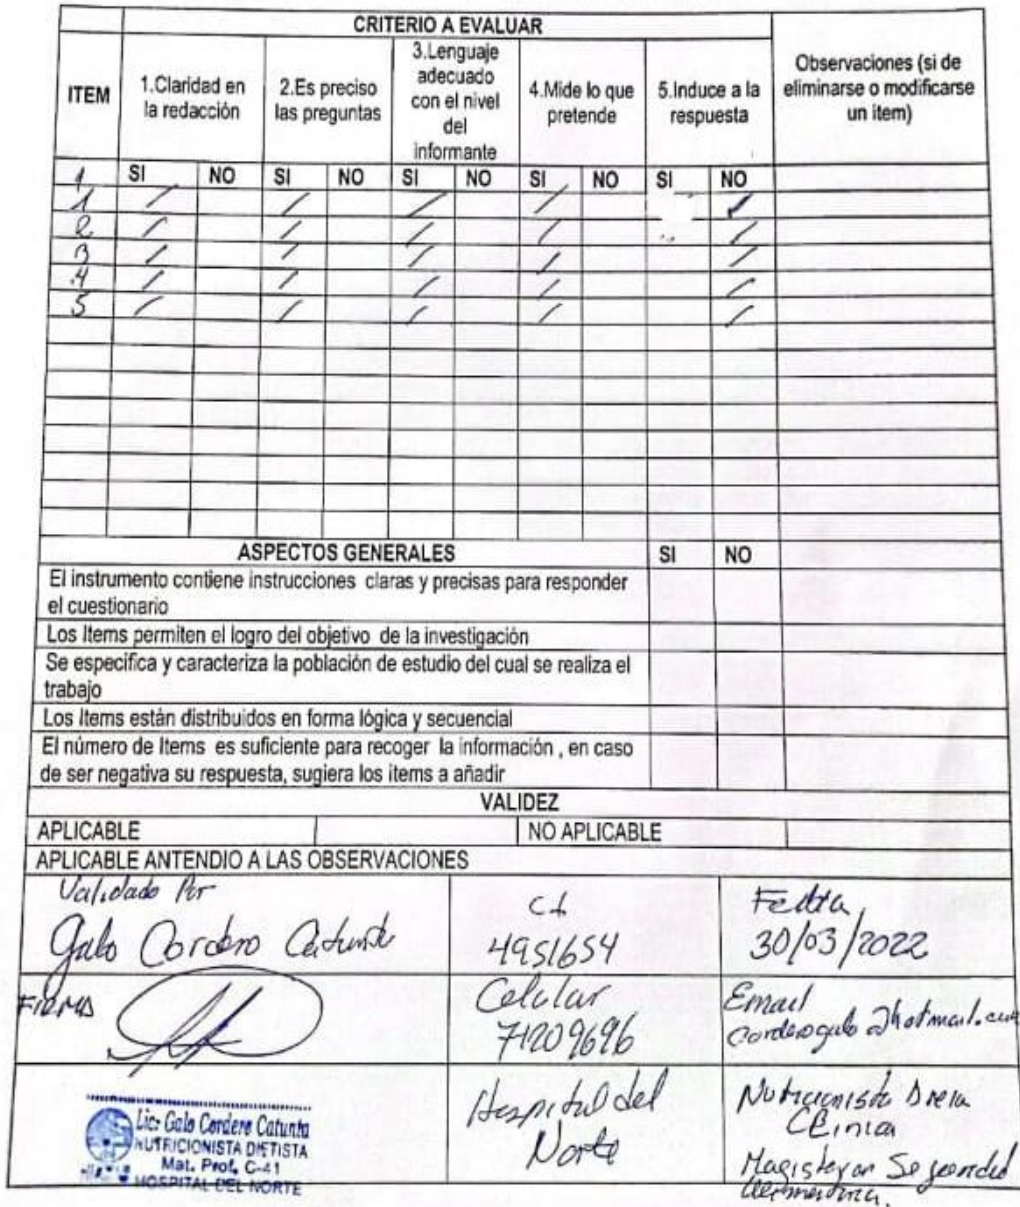 CRITERIO A EVALUAR
ITEM
1.Claridad en
la redacción
2.Es preciso
las preguntas
3.Lenguaje
adecuado
con el nivel
del
informante
4.Mide lo que
pretende
5.Induce a la
respuesta
Observaciones (si de
eliminarse o modificarse
un item)
1 SI NO SI NO SI NO SI NO SI NO
1
2
3
4
5
ASPECTOS GENERALES SI NO
El instrumento contiene instrucciones claras y precisas para responder
el cuestionario
Los Items permiten el logro del objetivo de la investigación
Se especifica y caracteriza la población de estudio del cual se realiza el
trabajo
Los Items están distribuidos en forma lógica y secuencial
El número de Items es suficiente para recoger la información , en caso
de ser negativa su respuesta, sugiera los items a añadir
VALIDEZ
APLICABLE NO APLICABLE
APLICABLE ANTENDIO A LAS OBSERVACIONES
Validado Por
Galo Cordero Catunta
C.I.
4951654
Fecha
30/03/2022
FIRMA
Celular
71209696
Email
Lic. Galo Cordero Catunta
NUTRICIONISTA DIETISTA
Mat. Prof. C-41
HOSPITAL DEL NORTE
Hospital del
Norte
Nutricionista
Magister en